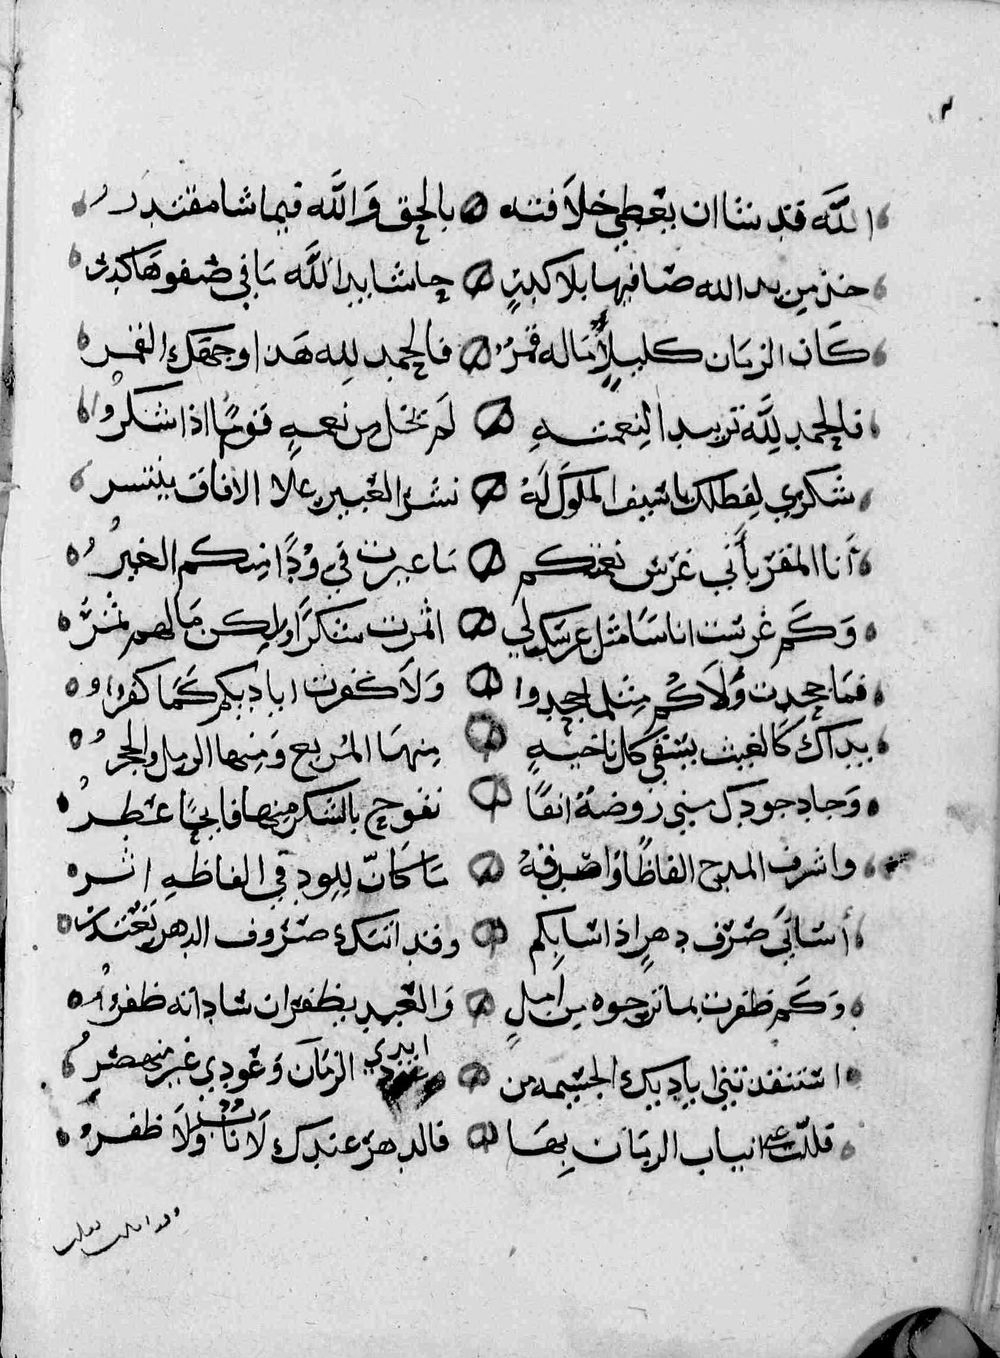 ٢
الله قد شا ان يعطي خلافته بالحق وَاللَّه فيما شا مقتدر
خذ من يد الله صافيها بلا كدرٍ حاشا يد اللَّه مَا في صفوها كدر
كَان الزمَان كليلٍ مَاله قمرٌ فالحمد لله هَذا وجهك القمر
فالحمد لِلَّه تزيد النعمته لَم تخل من نعمهٍ قومٌ اذا شكروا
شكري لفضلك يا سيف الملوك لَهُ نشر العبير علا الافاق ينتشر
أَنا المقر بأَني غرس نعمتكم مَا غيرت في وُدَّا منكم الغير
وَكَم غرست اناسًا مثل غرسك لي اثمرت شكرًا ولكن مَا لهم ثمرُ
فمَا جحدت وُلَاكُم مثلما جحدوا وَلَا كفرت اياديكم كَمَا كفروا
يداك كَالغيث يسقي كل ناحيهٍ منهَا المُريع وَمنها الرمل والحجر
وَجاد جودك مني روضة انفًا تفوح بالشكر منها فايحًا عطر
واشرف المدح الفاظًا واصرفهُ مَا كَانَ للود في الفاظهِ اثر
أسَاتي صَرف دهرٍ اذ اسَا بكم وقد اتتك صروف الدهر تعتذر
وَكَم ظفرت بما نرجوه من املٍ وَالعبيد يظفر ان سَاداته ظفروا
استنقذتني اياديك الجسيمه من ايدي الزمَان وَعودي غير منهصر
فللت عني انياب الزمَان بهَا فالدهر عندك لَا نابٌ ولَا ظفر